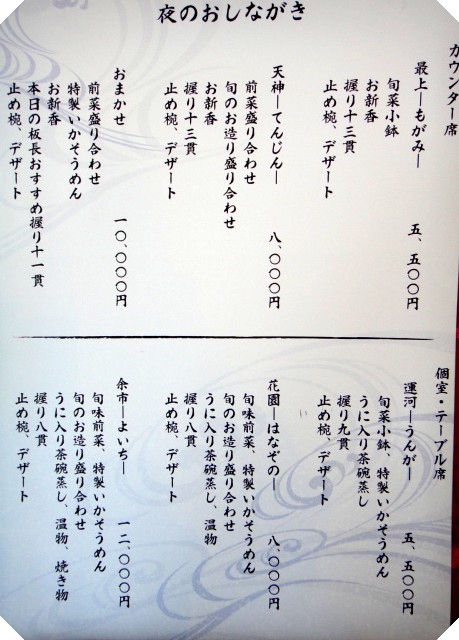 夜のおしながき
カウンター席
最上―もがみ― 五、五〇〇円
旬菜小鉢
お新香
握り十三貫
止め椀、デザート
天神―てんじん― 八、〇〇〇円
前菜盛り合わせ
旬のお造り盛り合わせ
お新香
握り十三貫
止め椀、デザート
おまかせ 一〇、〇〇〇円
前菜盛り合わせ
特製いかそうめん
お新香
本日の板長おすすめ握り十一貫
止め椀、デザート
個室・テーブル席
運河―うんが― 五、五〇〇円
旬菜小鉢、特製いかそうめん
うに入り茶碗蒸し
握り九貫
止め椀、デザート
花園―はなぞの― 八、〇〇〇円
旬味前菜、特製いかそうめん
旬のお造り盛り合わせ
うに入り茶碗蒸し、温物
握り八貫
止め椀、デザート
余市―よいち― 一二、〇〇〇円
旬味前菜、特製いかそうめん
旬のお造り盛り合わせ
うに入り茶碗蒸し、温物、焼き物
握り八貫
止め椀、デザート